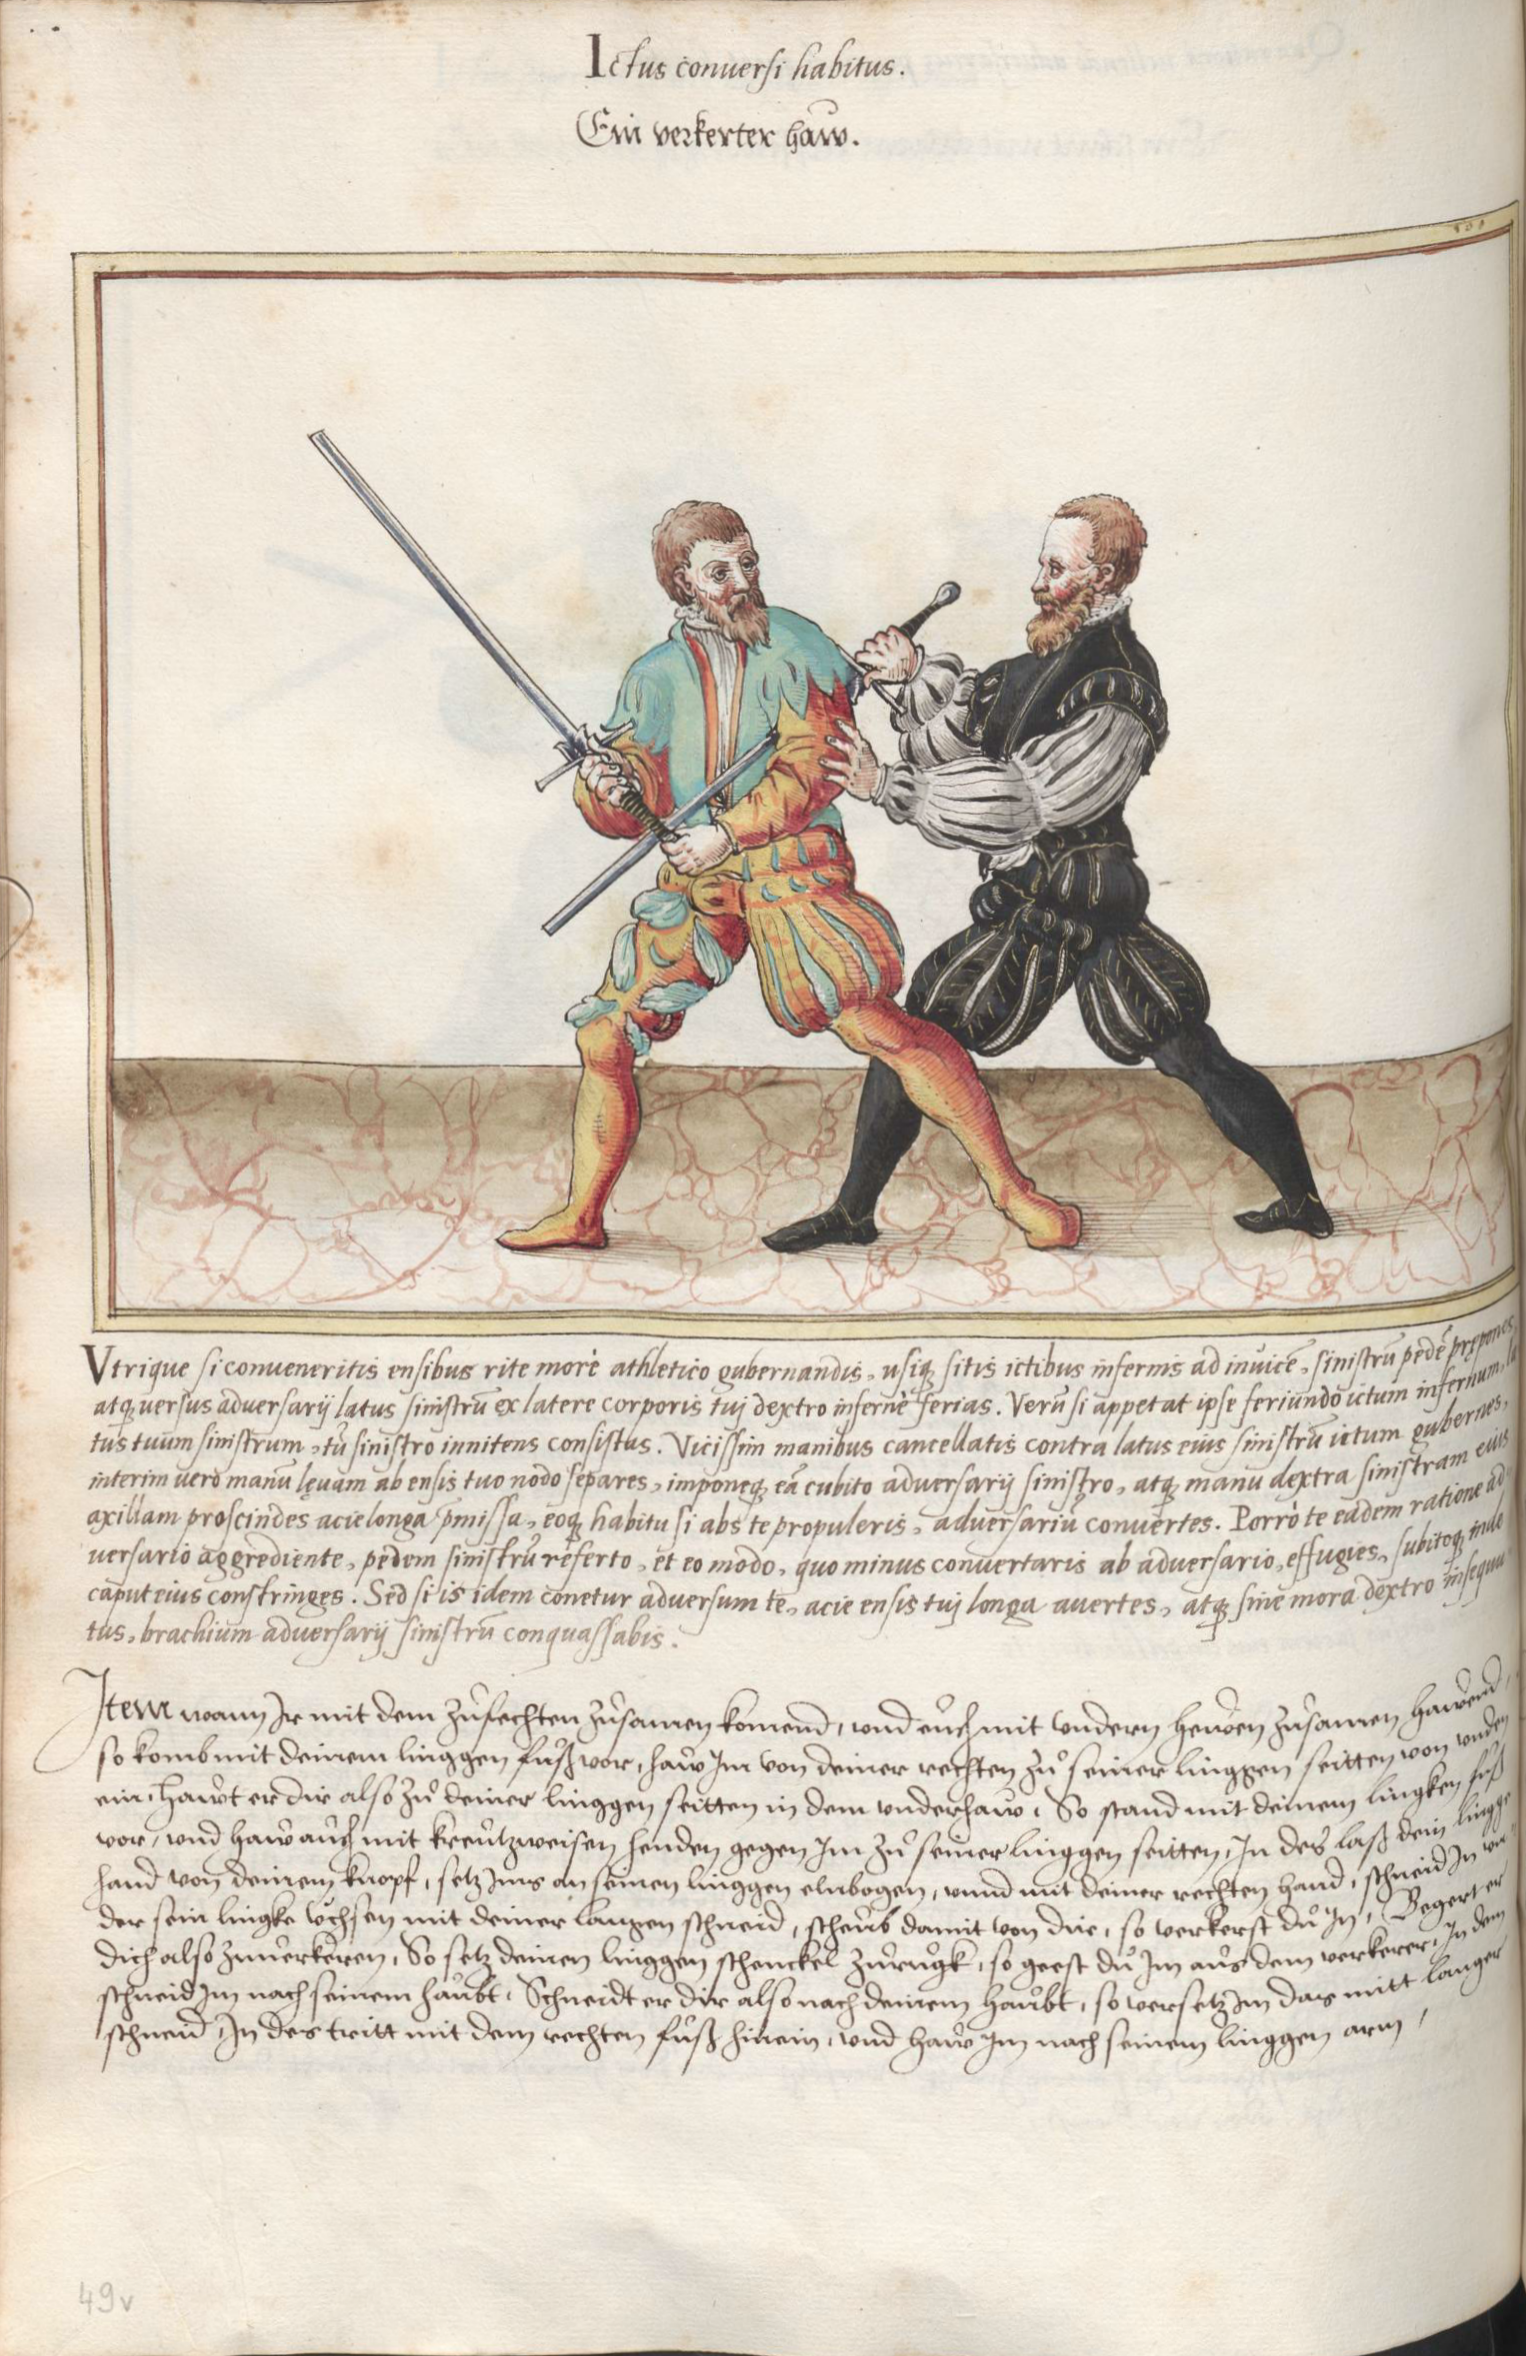 Ictus conuersi habitus.
Ein verkerter haw.
Vtrique si conueneritis ensibus rite more athletico gubernandis, usiq; sitis ictibus infernis ad inuicē, sinistrū pedē prępones,
atq; uersus aduersarij latus sinistrū ex latere corporis tuj dextro infernè ferias. Verū si appetat ipse feriundo ictum infernum, la
tus tuum sinistrum, tū sinistro innitens consistas. Vicissim manibus cancellatis contra latus eius sinistrū ictum gubernes,
interim uero manū lęuam ab ensis tuo nodo separes, imponeq; eā cubito aduersarij sinistro, atq; manu dextra sinistram eius
axillam proscindes acie longa p̄missa, eoq; habitu si abs te propuleris, aduersariū conuertes. Porrò te eadem ratione ad
uersario aggrediente, pedem sinistrū referto, et eo modo, quo minus conuertaris ab aduersario, effugies, subitoq; inde
caput eius constringes. Sed si is idem conetur aduersum te, acie ensis tuj longa auertes, atq; sine mora dextro insequu
tus, brachium aduersarij sinistrū conquassabis.
Item wann Ir mit dem zůfechten zůsamen komend, vnd eůch mit vndern hewen zůsamen hawend,
so komb mit deinem linggen fůß vor, haw Im von deiner rechten zů seiner linggen seitten von vnden
ein, Hawt er dir also zů deiner linggen seitten in dem vnderhaw, So stand mit deinem lingken fůß
vor, vnd haw aůch mit kreůtzweisen henden gegen Im zů seiner linggen seitten, In des laß dein lingge
hand von deinem knopf, setz Ims an seinen linggen elnbogen, vnnd mit deiner rechten hand, schneid In vn
der sein lingke vchsen mit deiner langen schneid, scheůb damit von dir, so verkerst dů In, Begert er
dich also zuverkeren, So setz deinen linggen schenckel zůrugk, so geest dů Im aůs dem verkerer, In dem
schneid Im nach seinem haůbt, Schneidt er dir also nach deinem haůbt, so versetz Im das mitt langer
schneid, In des tritt mit dem rechten fůß hinein, vnd haw Im nach seinem linggen arm,
49v